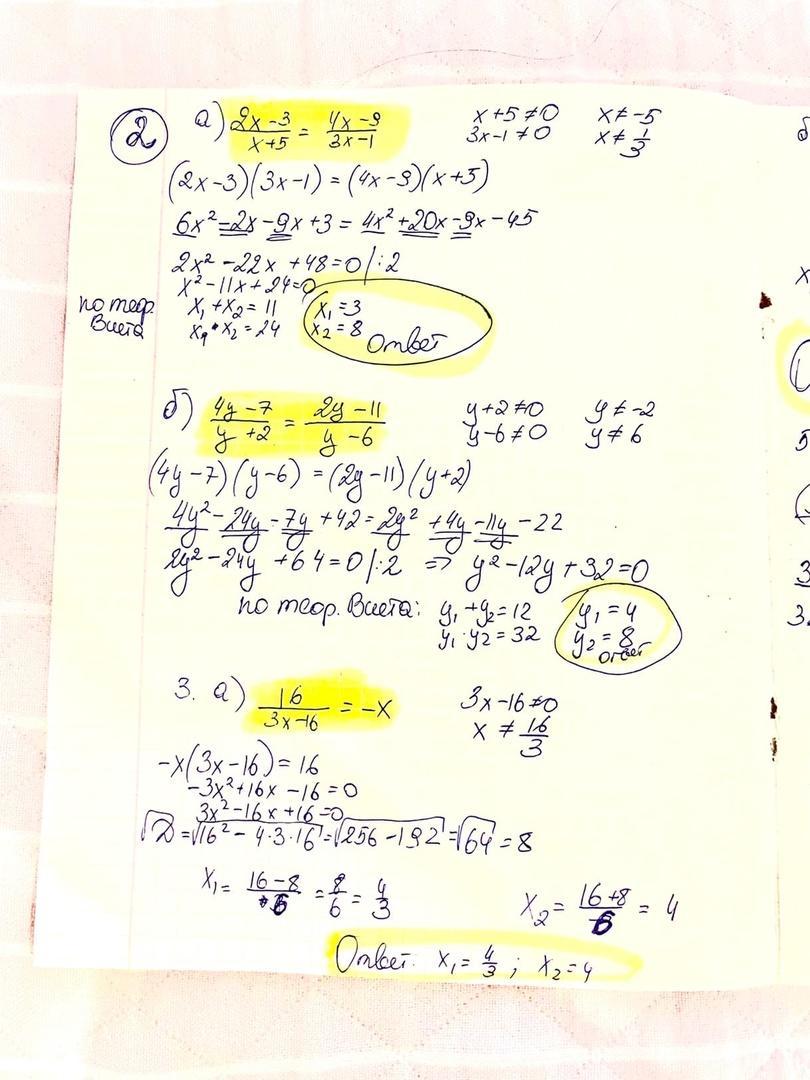 2
а) (2x-3)/(x+5) = (4x-9)/(3x-1)    x+5≠0    x≠-5
3x-1≠0    x≠1/3
(2x-3)(3x-1)=(4x-9)(x+5)
6x²-2x-9x+3=4x²+20x-9x-45
2x²-22x+48=0 |:2
x²-11x+24=0
по теор. Виета    x₁+x₂=11    x₁=3
x₁•x₂=24    x₂=8    Ответ
б) (4y-7)/(y+2) = (2y-11)/(y-6)    y+2≠0    y≠-2
y-6≠0    y≠6
(4y-7)(y-6)=(2y-11)(y+2)
4y²-24y-7y+42=2y²+4y-11y-22
2y²-24y+64=0 |:2 ⇒ y²-12y+32=0
по теор. Виета: y₁+y₂=12    y₁=4
y₁·y₂=32    y₂=8
Ответ
3. а) 16/(3x-16) = -x    3x-16≠0
x≠16/3
-x(3x-16)=16
-3x²+16x-16=0
3x²-16x+16=0
√D=√(16²-4·3·16)=√(256-192)=√64=8
x₁=(16-8)/6=8/6=4/3    x₂=(16+8)/6=4
Ответ: x₁=4/3; x₂=4